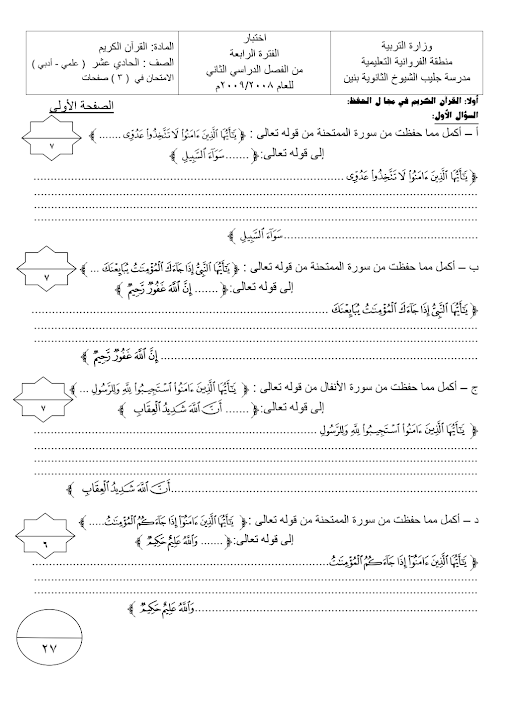 وزارة التربية
منطقة الفروانية التعليمية
مدرسة جليب الشيوخ الثانوية بنين
اختبار
الفترة الرابعة
من الفصل الدراسي الثاني
للعام ٢٠٠٩/٢٠٠٨م
المادة: القرآن الكريم
الصف : الحادي عشر ( علمي - أدبي )
الامتحان في ( ٣ ) صفحات
أولا: القرآن الكريم في مجال الحفظ:
الصفحة الأولى
السؤال الأول:
أ – أكمل مما حفظت من سورة الممتحنة من قوله تعالى : ﴿ يَـٰٓأَيُّهَا ٱلَّذِينَ ءَامَنُوا۟ لَا تَتَّخِذُوا۟ عَدُوِّى ....... ﴾
٧
إلى قوله تعالى:﴿ .......سَوَآءَ ٱلسَّبِيلِ ﴾
﴿ يَـٰٓأَيُّهَا ٱلَّذِينَ ءَامَنُوا۟ لَا تَتَّخِذُوا۟ عَدُوِّى ..........
..........سَوَآءَ ٱلسَّبِيلِ ﴾
ب – أكمل مما حفظت من سورة الممتحنة من قوله تعالى : ﴿ يَـٰٓأَيُّهَا ٱلنَّبِىُّ إِذَا جَآءَكَ ٱلْمُؤْمِنَـٰتُ يُبَايِعْنَكَ ... ﴾
٧
إلى قوله تعالى:﴿ ....... إِنَّ ٱللَّهَ غَفُورٌ رَّحِيمٌ ﴾
﴿ يَـٰٓأَيُّهَا ٱلنَّبِىُّ إِذَا جَآءَكَ ٱلْمُؤْمِنَـٰتُ يُبَايِعْنَكَ ..........
.......... إِنَّ ٱللَّهَ غَفُورٌ رَّحِيمٌ ﴾
ج – أكمل مما حفظت من سورة الأنفال من قوله تعالى : ﴿ يَـٰٓأَيُّهَا ٱلَّذِينَ ءَامَنُوا۟ ٱسْتَجِيبُوا۟ لِلَّهِ وَلِلرَّسُولِ ... ﴾
٧
إلى قوله تعالى:﴿ ....... أَنَّ ٱللَّهَ شَدِيدُ ٱلْعِقَابِ ﴾
﴿ يَـٰٓأَيُّهَا ٱلَّذِينَ ءَامَنُوا۟ ٱسْتَجِيبُوا۟ لِلَّهِ وَلِلرَّسُولِ ..........
..........أَنَّ ٱللَّهَ شَدِيدُ ٱلْعِقَابِ ﴾
د – أكمل مما حفظت من سورة الممتحنة من قوله تعالى :﴿ يَـٰٓأَيُّهَا ٱلَّذِينَ ءَامَنُوٓا۟ إِذَا جَآءَكُمُ ٱلْمُؤْمِنَـٰتُ..... ﴾
٦
إلى قوله تعالى:﴿ ....... وَٱللَّهُ عَلِيمٌ حَكِيمٌ ﴾
﴿ يَـٰٓأَيُّهَا ٱلَّذِينَ ءَامَنُوٓا۟ إِذَا جَآءَكُمُ ٱلْمُؤْمِنَـٰتُ..........
..........وَٱللَّهُ عَلِيمٌ حَكِيمٌ ﴾
٢٧